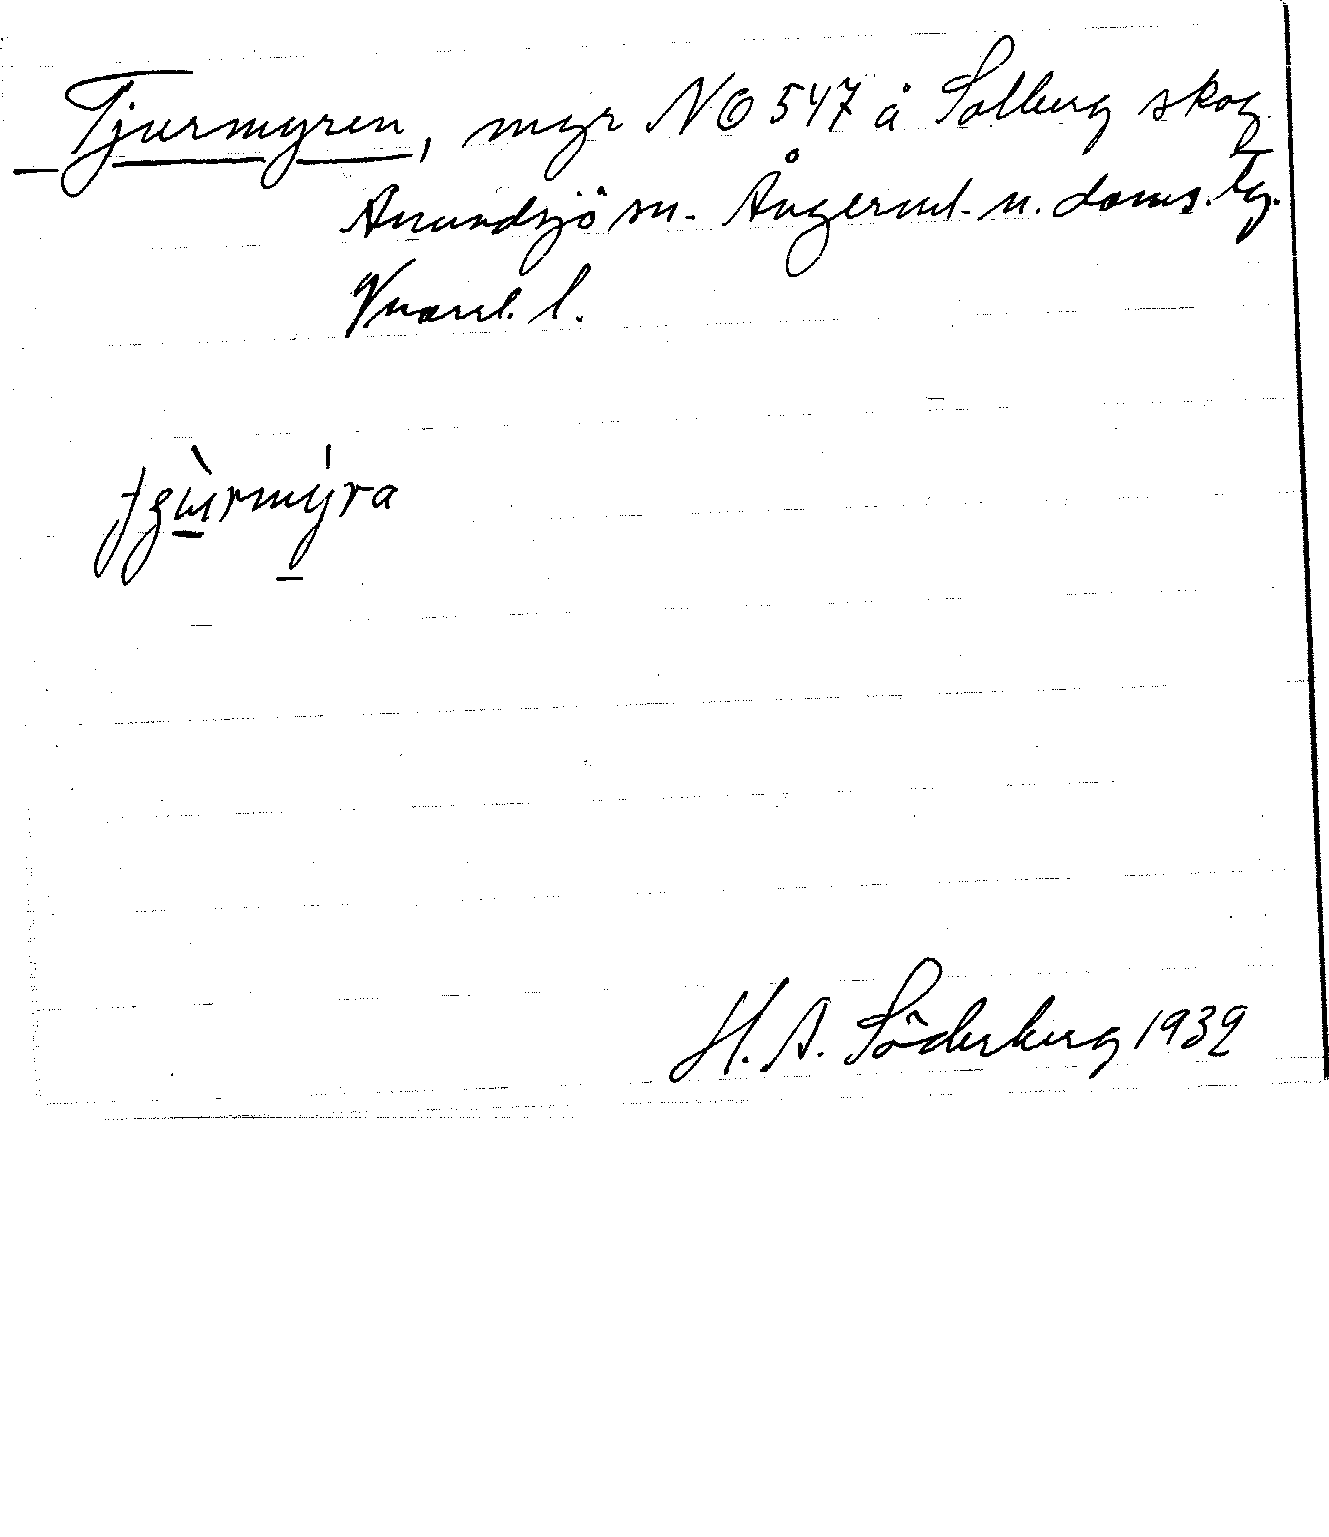 Tjurmyren, myr NO 547 å Solberg skog
Anundsjö sn. Ångerml. n. doms. lg.
Vnorrl. l.
tjùrmýra
H. A. Söderberg 1932